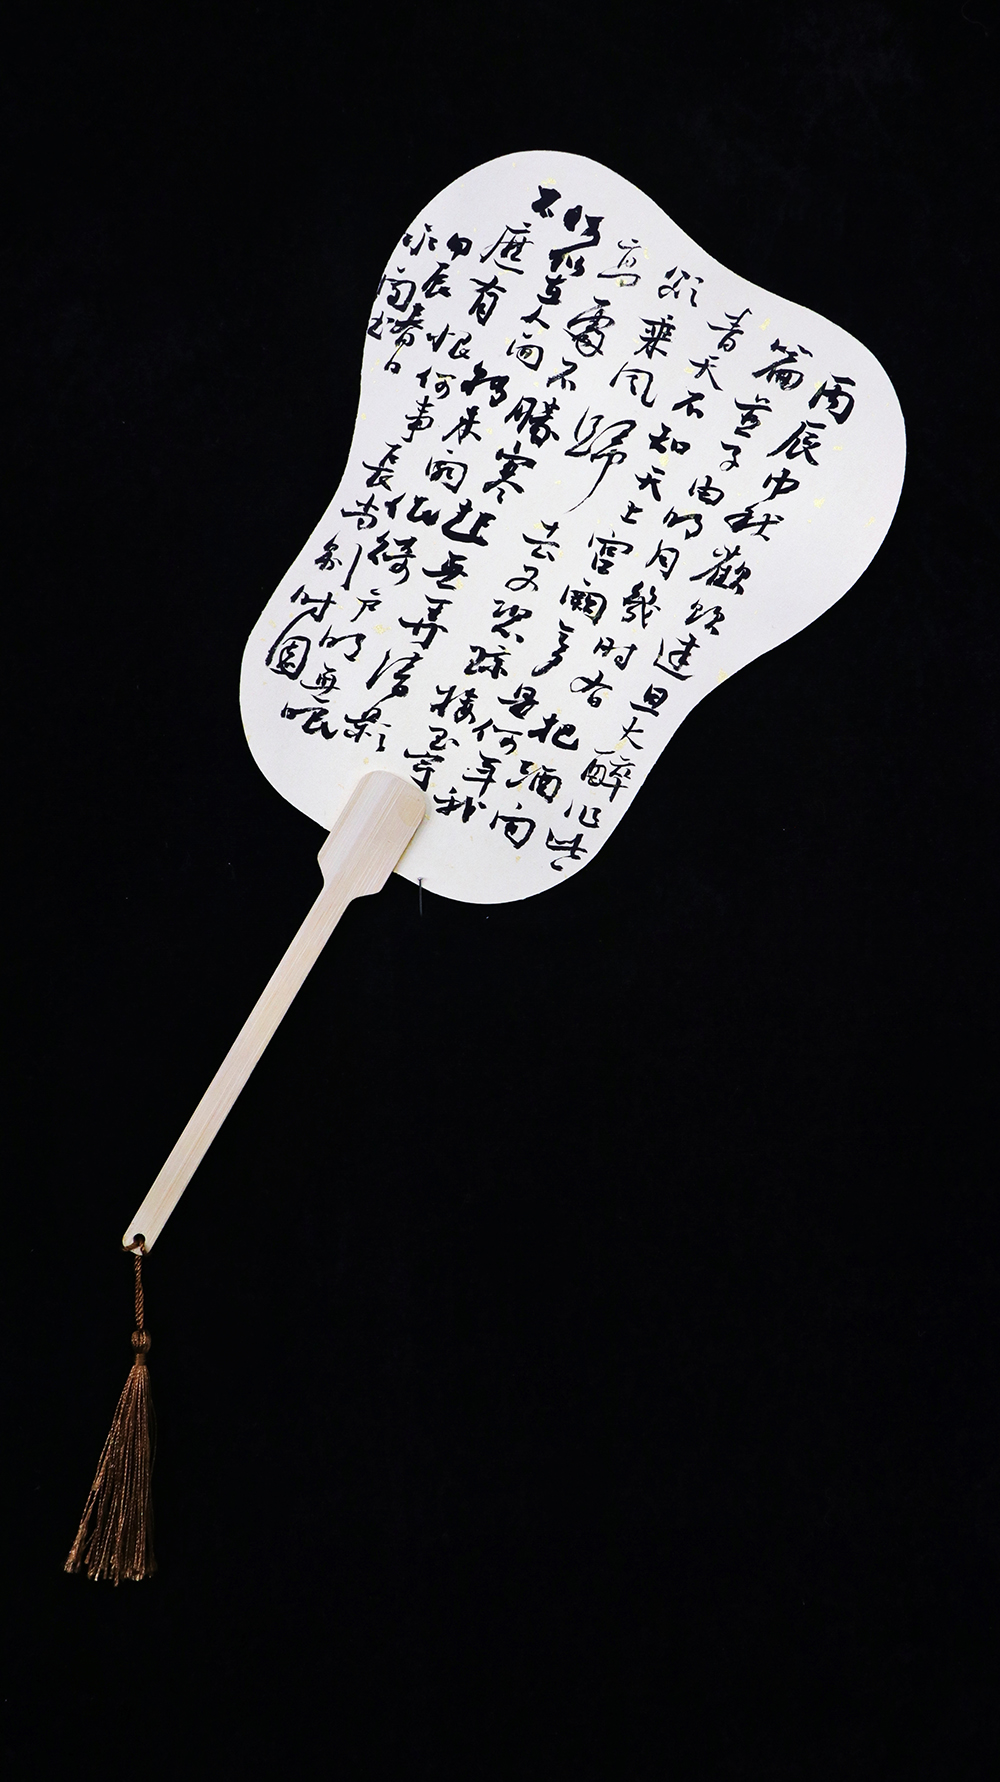 丙辰中秋歡飲達旦大醉作此
篇兼子由明月幾時有把酒向
青天不知天上宮闕今夕是何年我
欲乘風歸去又恐瓊樓玉宇
高處不勝寒起舞弄清影
何似在人間轉朱閣低綺戶照無眠
不應有恨何事長向別時圓
甲辰春日